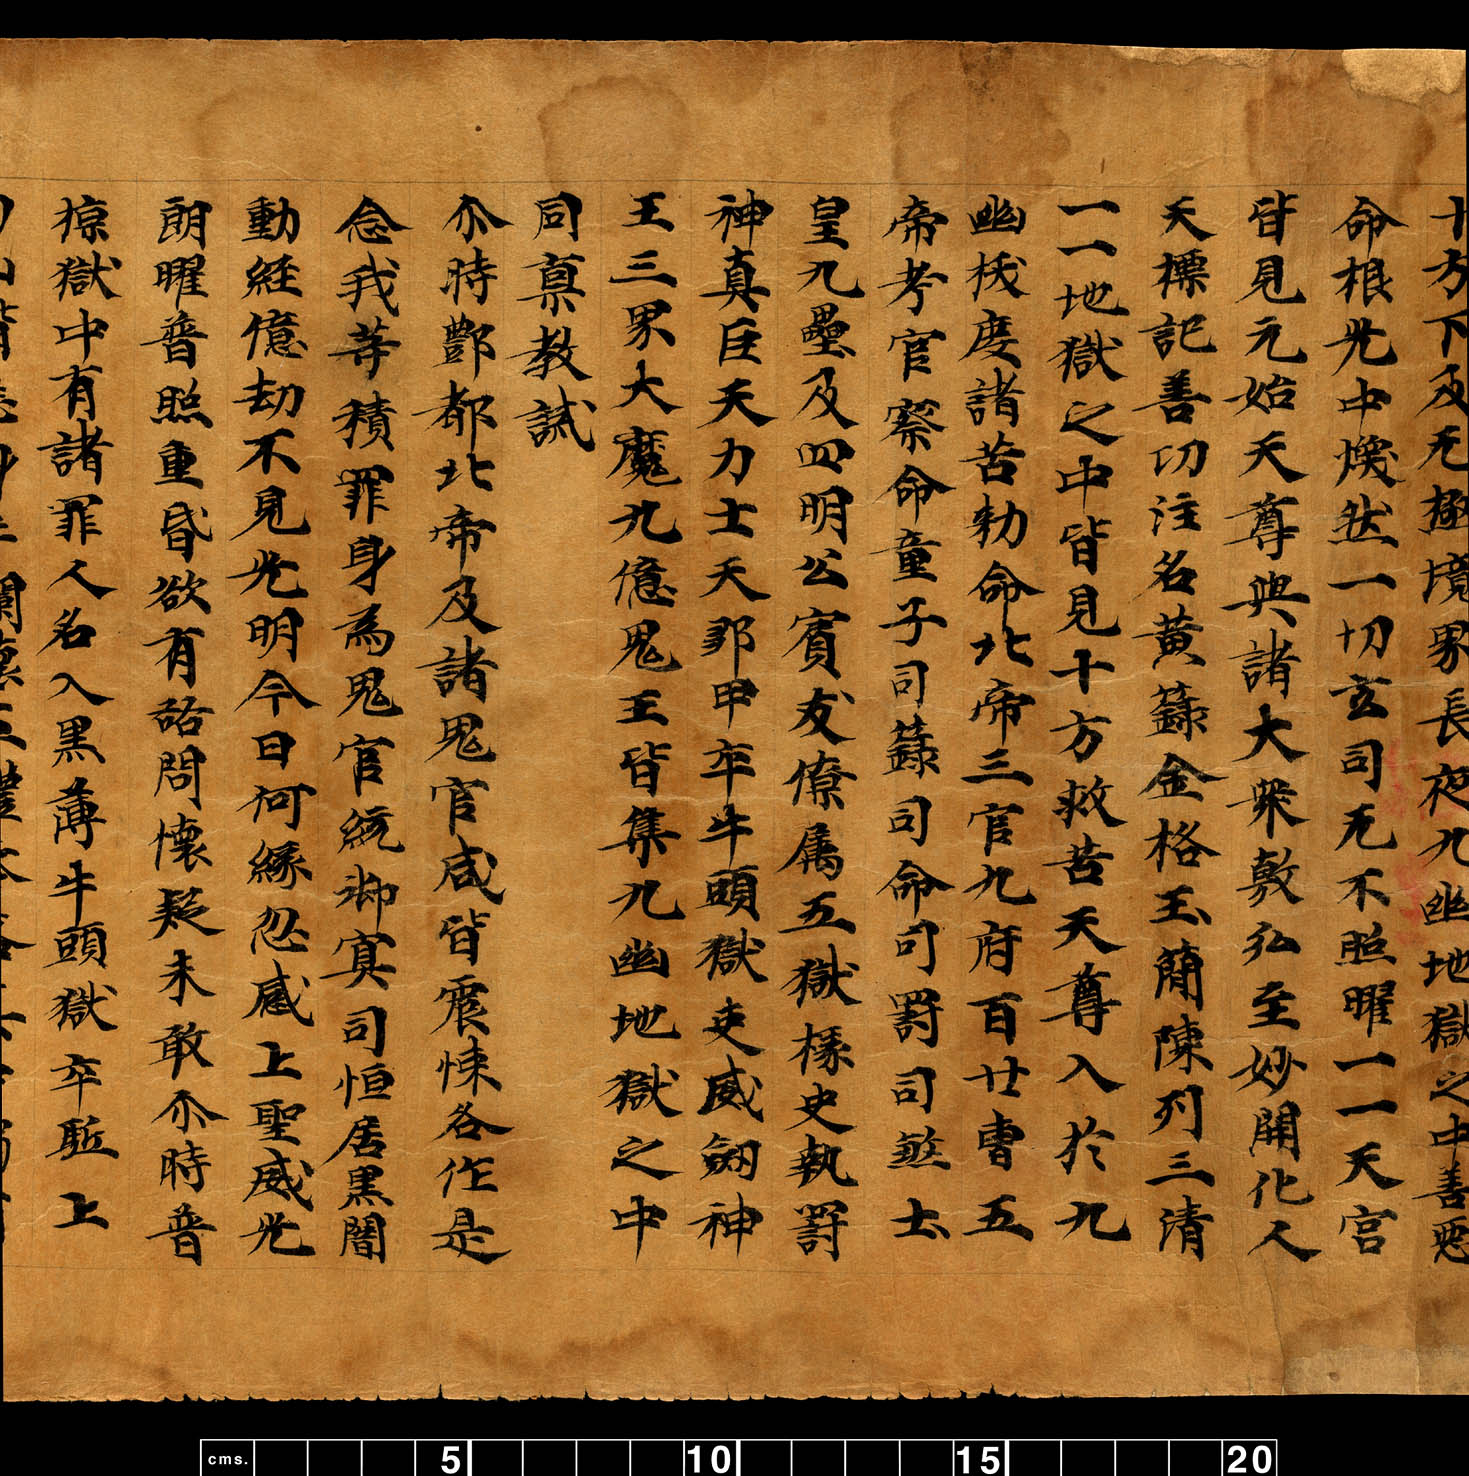 十方下及无極境界長夜九幽地獄之中善惡
命根光中煥然一切玄司无不照曜一一天宮
皆見元始天尊與諸大衆敷弘至妙開化人
天標記善功注名黃籙金格玉簡陳列三清
一一地獄之中皆見十方救苦天尊入於九
幽拔度諸苦勑命北帝三官九府百廿曹五
帝考官察命童子司籙司命司罸司煞士
皇九壘及四明公賓友僚属五獄椽史執罸
神真巨天力士天邪甲卒牛頭獄吏威劒神
王三界大魔九億鬼王皆集九幽地獄之中
同禀教試
尒時酆都北帝及諸鬼官咸皆震悚各作是
念我䓁積罪身為鬼官統御冥司恒居黒闇
動經億劫不見光明今日何緣忽感上聖威光
朗曜普照重昏欲有諮問懷疑未敢尒時普
掠獄中有諸罪人名入黒薄牛頭獄卒駈上